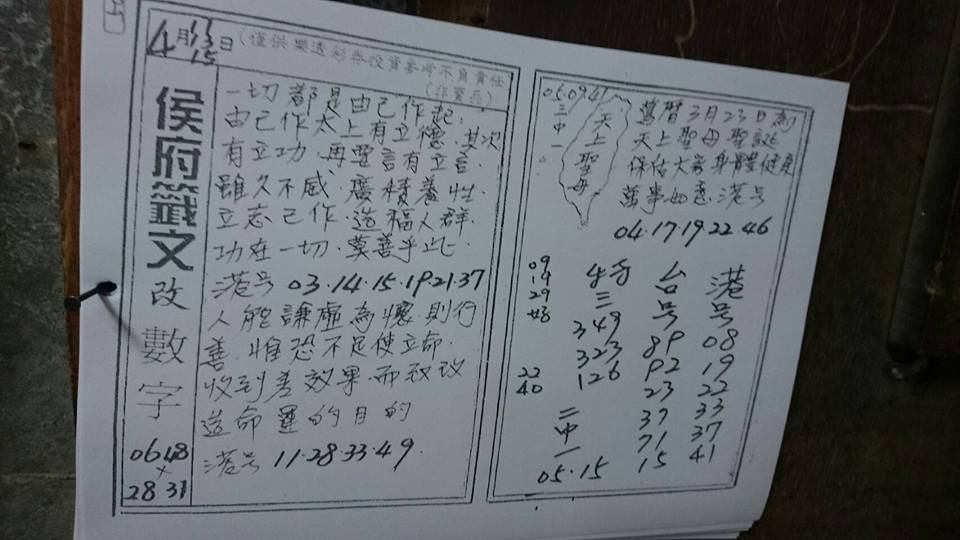 4月13日
15
(僅供樂透彩券投資參考不負責任
(非賣品)
侯府籤文
改數字
06 48
×
28 31
一切都是由己作起.
由己作太上有立德.其次
有立功.再要言有立言.
雖久不感.廣積養性
立志己作.造福人群.
功在一切.莫善乎此.
港号 03.14.15.19.21.37
人能謙虛為懷則行
善.惟恐不足使立命.
收到差效果.而致改
造命運的目的
港号 11.28.33.49.
05.09.41
三中一
天上聖母
萬曆3月23日為
天上聖母聖誕
保佑大家身體健康
萬事如意.港号
04.17.19.22.46
09
19
29
22
40
三
349
323
126
二中一
05.15
台号
89
92
23
37
71
15
港号
08
19
22
33
37
41